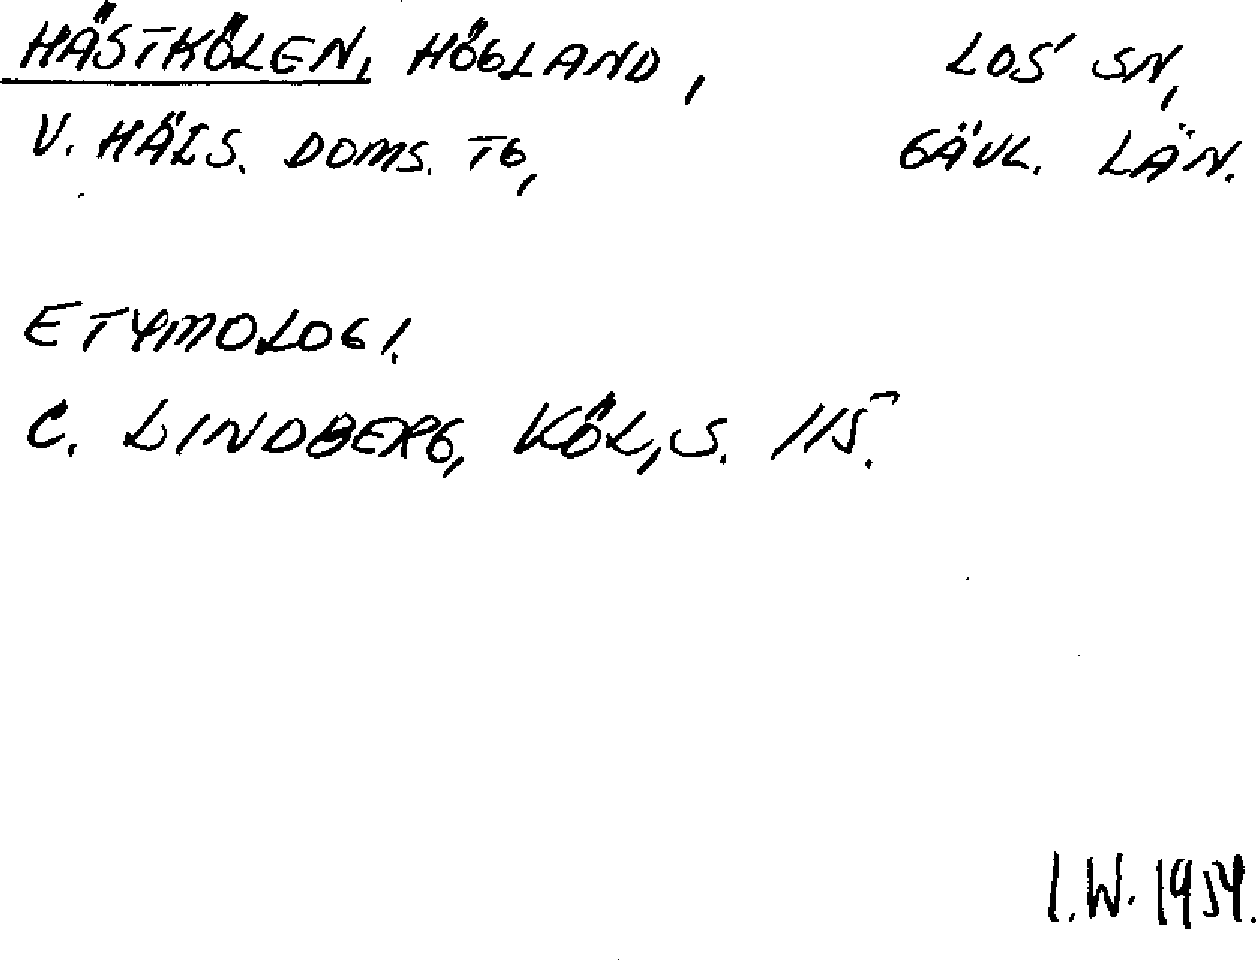 HÄSTKÖLEN, HÖGLAND, LOS SN,
V. HÄLS. DOMS. TG, GÄVL. LÄN.
ETYMOLOGI.
C. LINDBERG, KÖL, S. 115.
I.W. 1954.